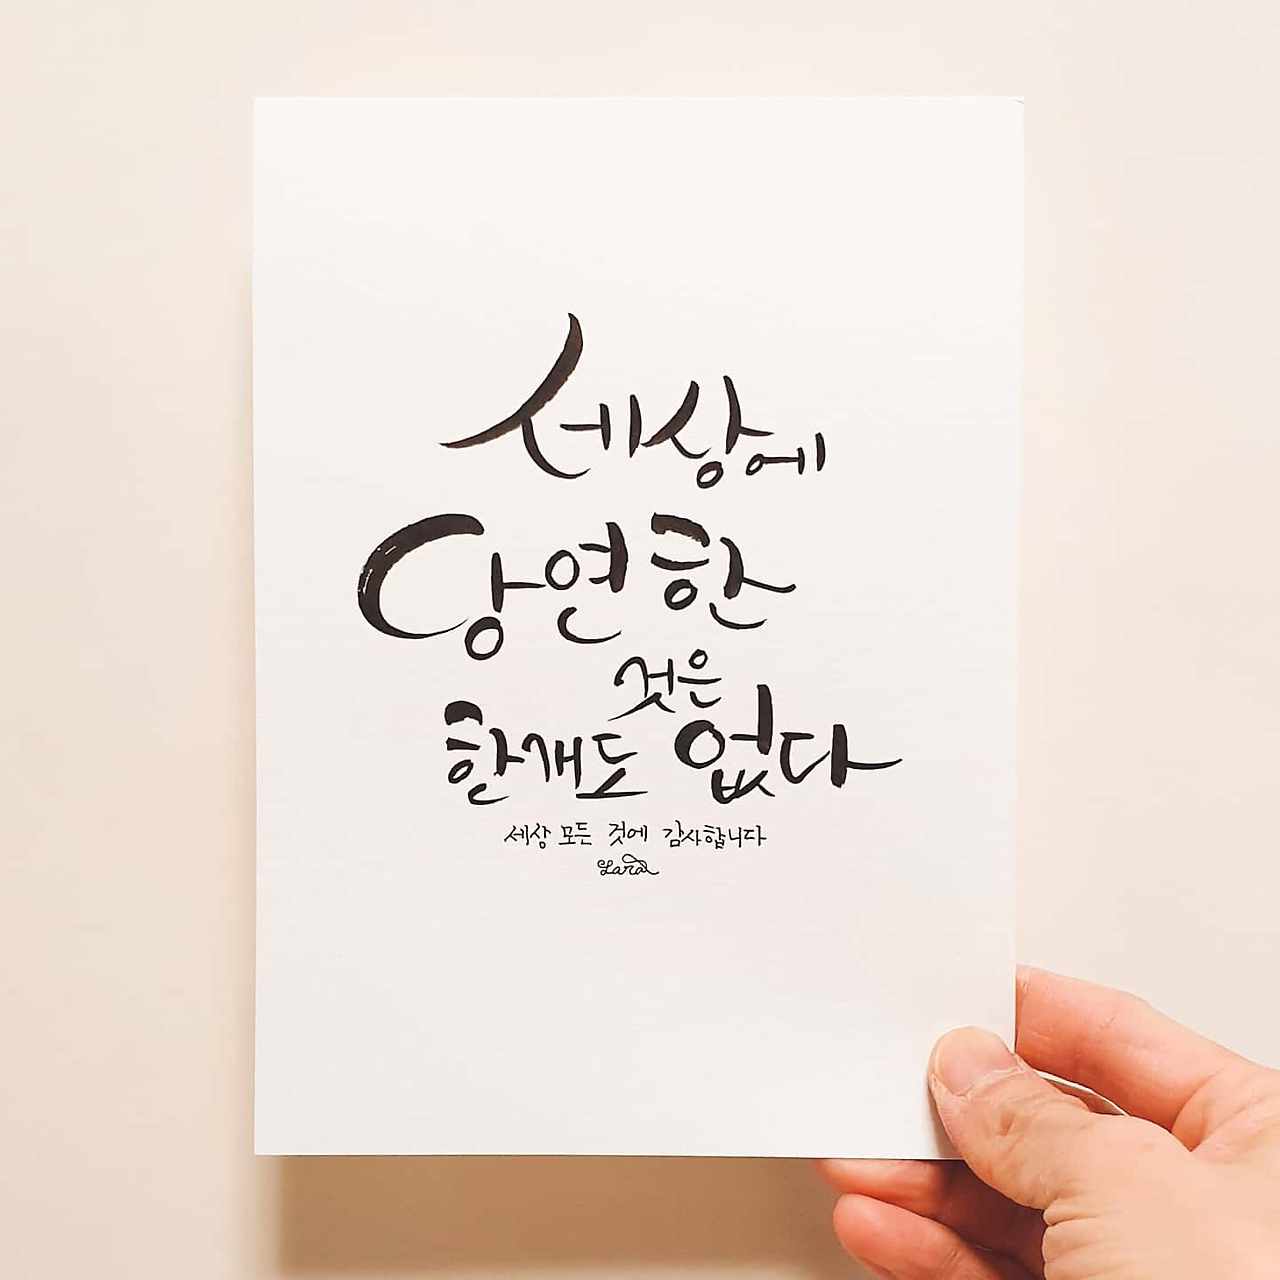 세상에
당연한
것은
한개도 없다
세상 모든 것에 감사합니다
Lara